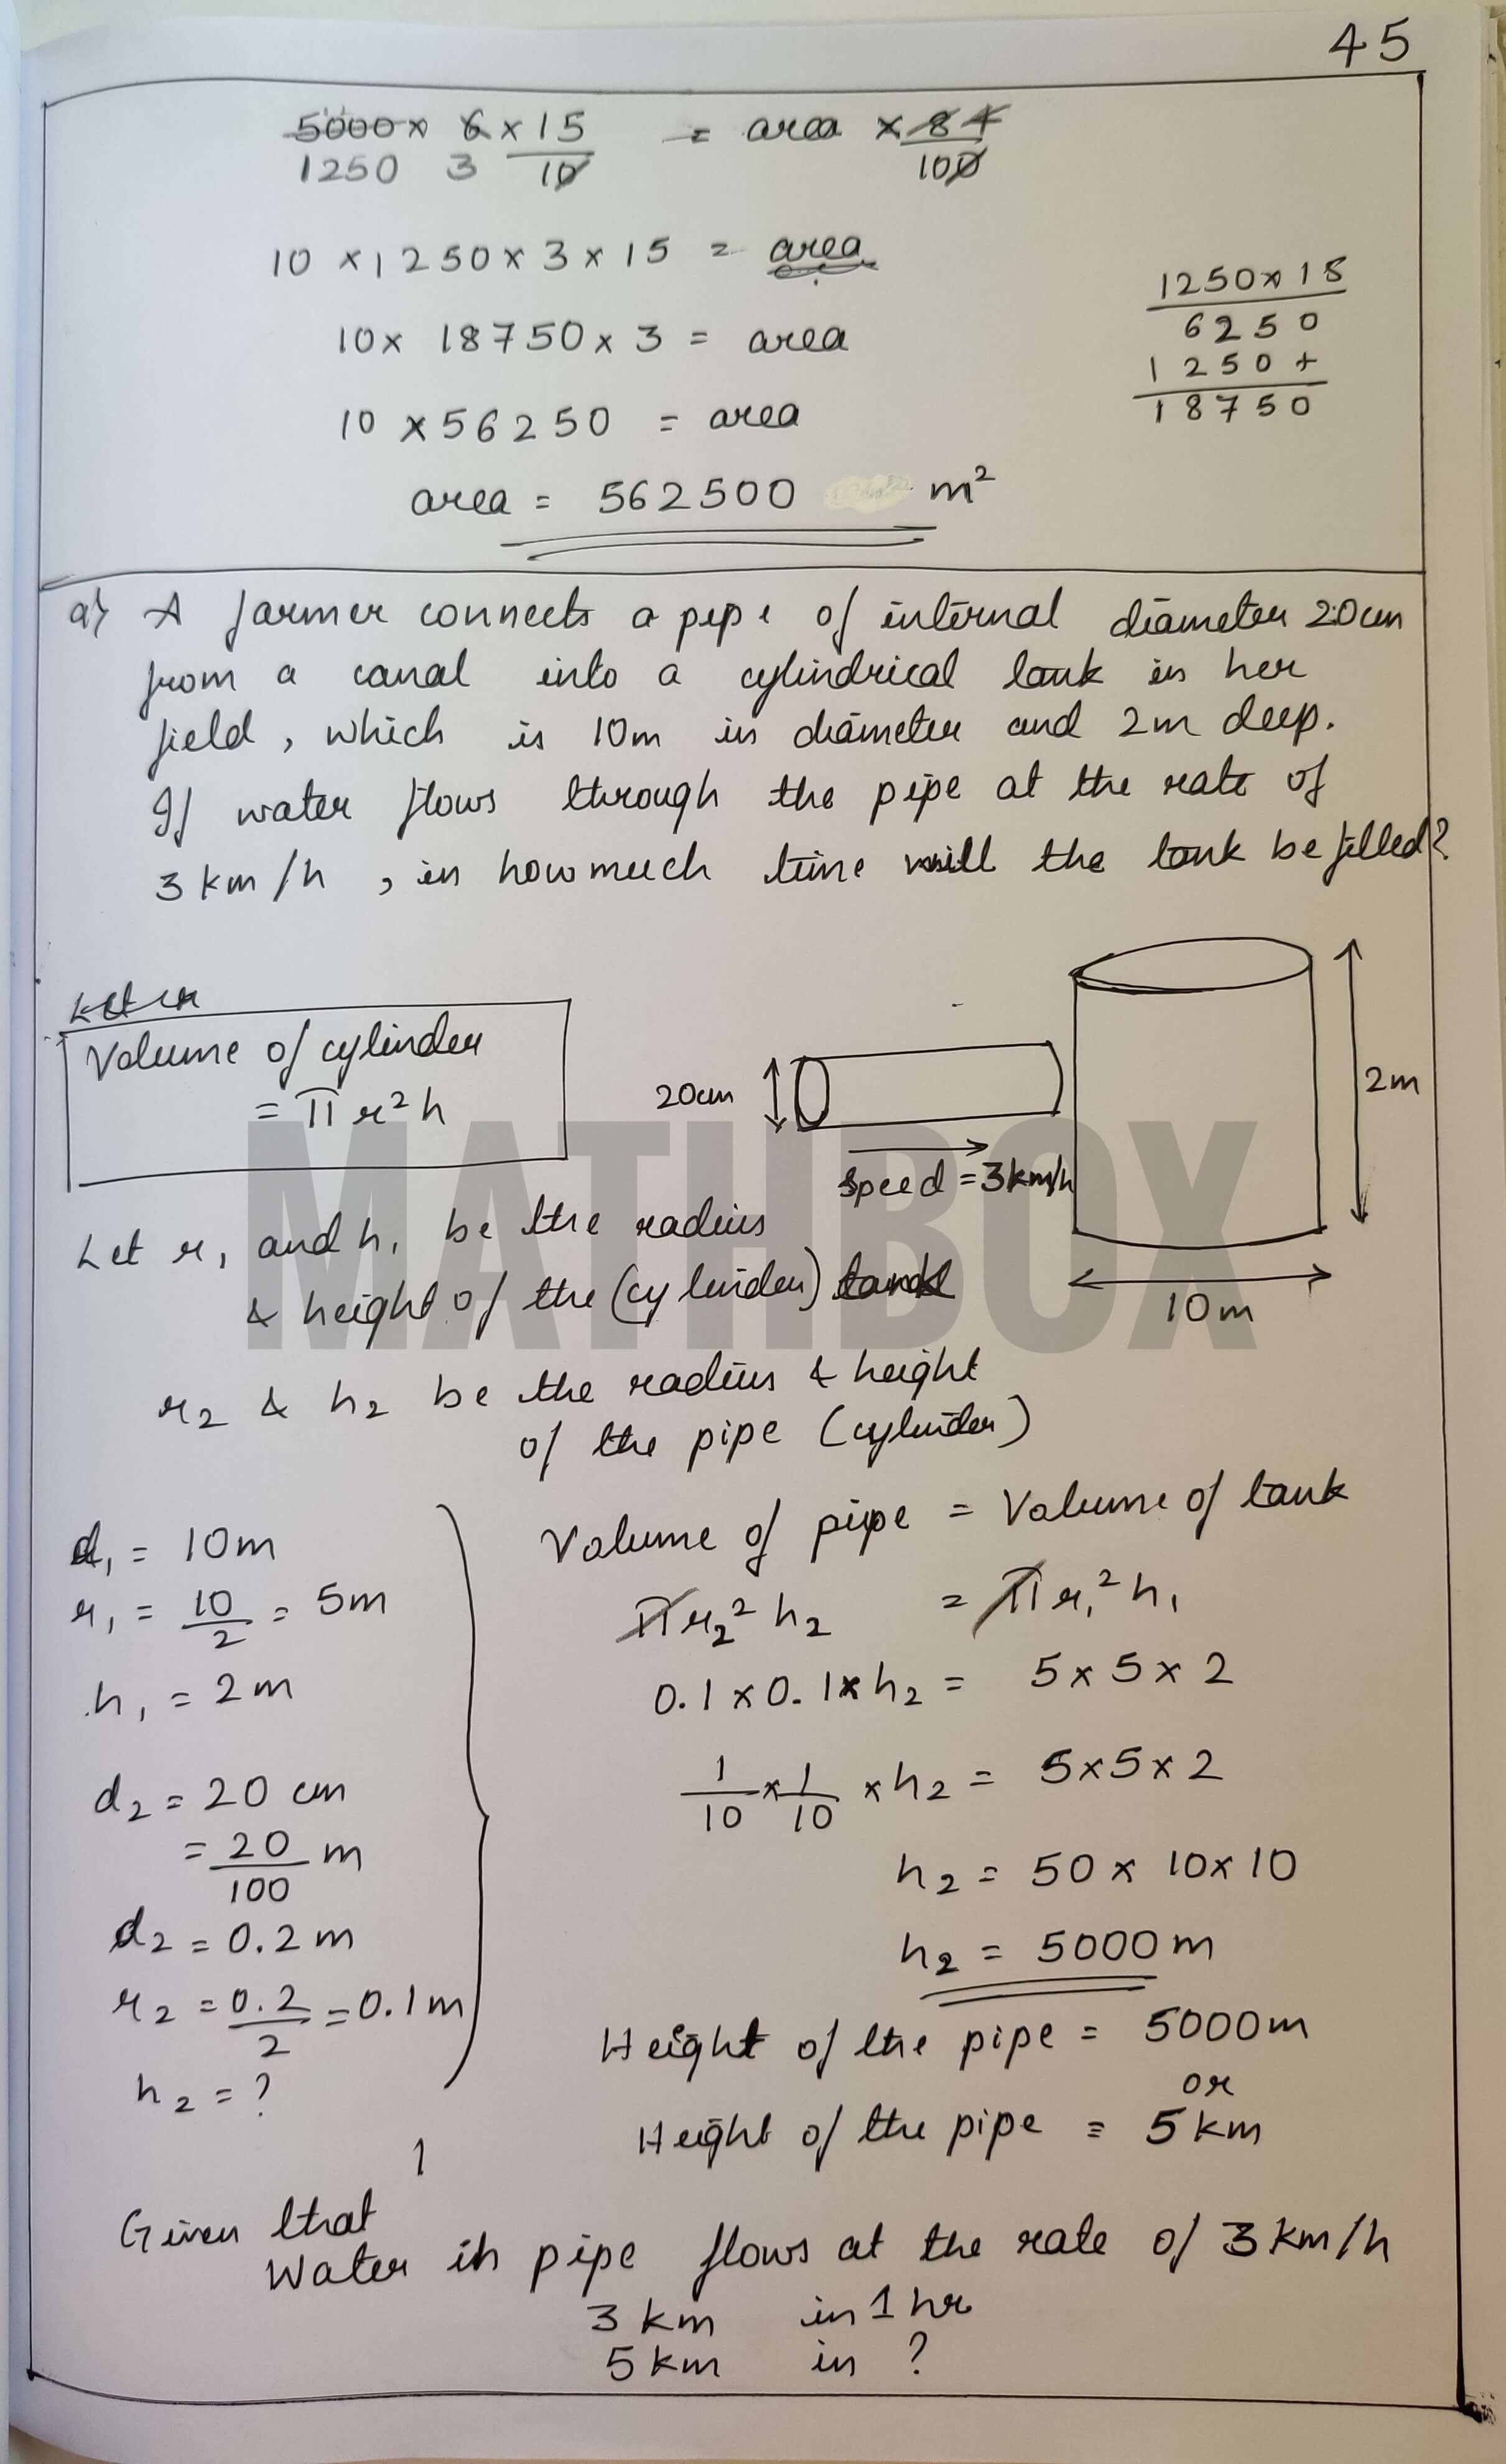 45
5000 × 6 × 15/10 = area × 84/100
1250 3
10 × 1250 × 3 × 15 = area
10 × 18750 × 3 = area
10 × 56250 = area
area = 562500 m²
1250 × 15
6250
1250 +
18750
Q) A farmer connects a pipe of internal diameter 20cm
from a canal into a cylindrical tank in her
field, which is 10m in diameter and 2m deep.
If water flows through the pipe at the rate of
3 km/h, in how much time will the tank be filled?
Volume of cylinder
= π r² h
20cm
speed = 3km/h
2m
10m
Let r₁ and h₁ be the radius
& height of the (cylinder) tank
r₂ & h₂ be the radius & height
of the pipe (cylinder)
d₁ = 10m
r₁ = 10/2 = 5m
h₁ = 2m
d₂ = 20 cm
= 20/100 m
d₂ = 0.2m
r₂ = 0.2/2 = 0.1m
h₂ = ?
Volume of pipe = Volume of tank
π r₂² h₂ = π r₁² h₁
0.1 × 0.1 × h₂ = 5 × 5 × 2
1/10 × 1/10 × h₂ = 5 × 5 × 2
h₂ = 50 × 10 × 10
h₂ = 5000m
Height of the pipe = 5000m
or
Height of the pipe = 5 km
Given that
Water in pipe flows at the rate of 3 km/h
3 km in 1 hr
5 km in ?
MATHBOX